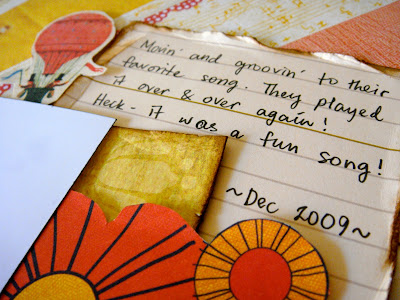 Movin' and groovin' to their
favorite song. They played
it over & over again!
Heck - it was a fun song!
~Dec 2009~